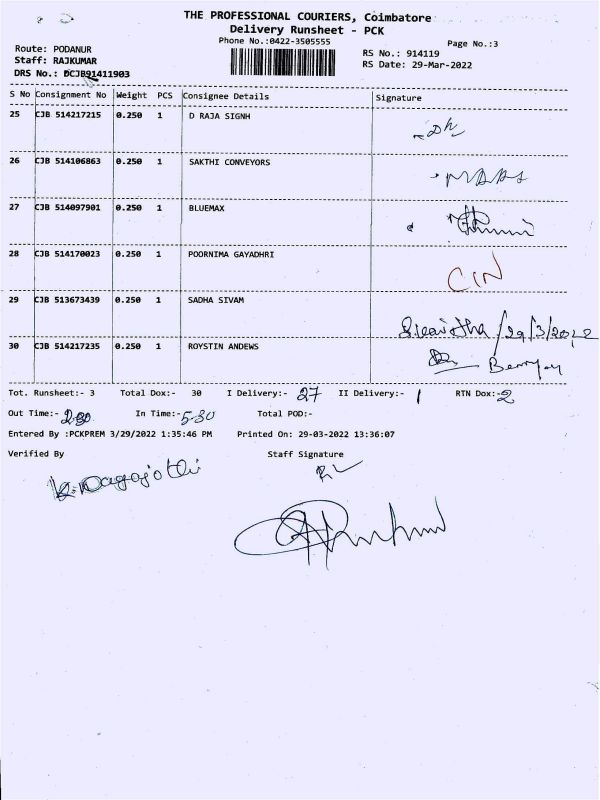 THE PROFESSIONAL COURIERS, Coimbatore
Delivery Runsheet - PCK
Phone No.:0422-3505555
Page No.:3
Route: PODANUR
RS No.: 914119
Staff: RAJKUMAR
RS Date: 29-Mar-2022
DRS No.: DCJB91411903
S No Consignment No Weight PCS Consignee Details Signature
25 CJB 514217215 0.250 1 D RAJA SIGNH
26 CJB 514106863 0.250 1 SAKTHI CONVEYORS
27 CJB 514097901 0.250 1 BLUEMAX
28 CJB 514170023 0.250 1 POORNIMA GAYADHRI CIN
29 CJB 513673439 0.250 1 SADHA SIVAM 29/3/2022
30 CJB 514217235 0.250 1 ROYSTIN ANDEWS
Tot. Runsheet:- 3 Total Dox:- 30 I Delivery:- 27 II Delivery:- 1 RTN Dox:- 2
Out Time:- 2.30 In Time:- 5-30 Total POD:-
Entered By :PCKPREM 3/29/2022 1:35:46 PM Printed On: 29-03-2022 13:36:07
Verified By Staff Signature